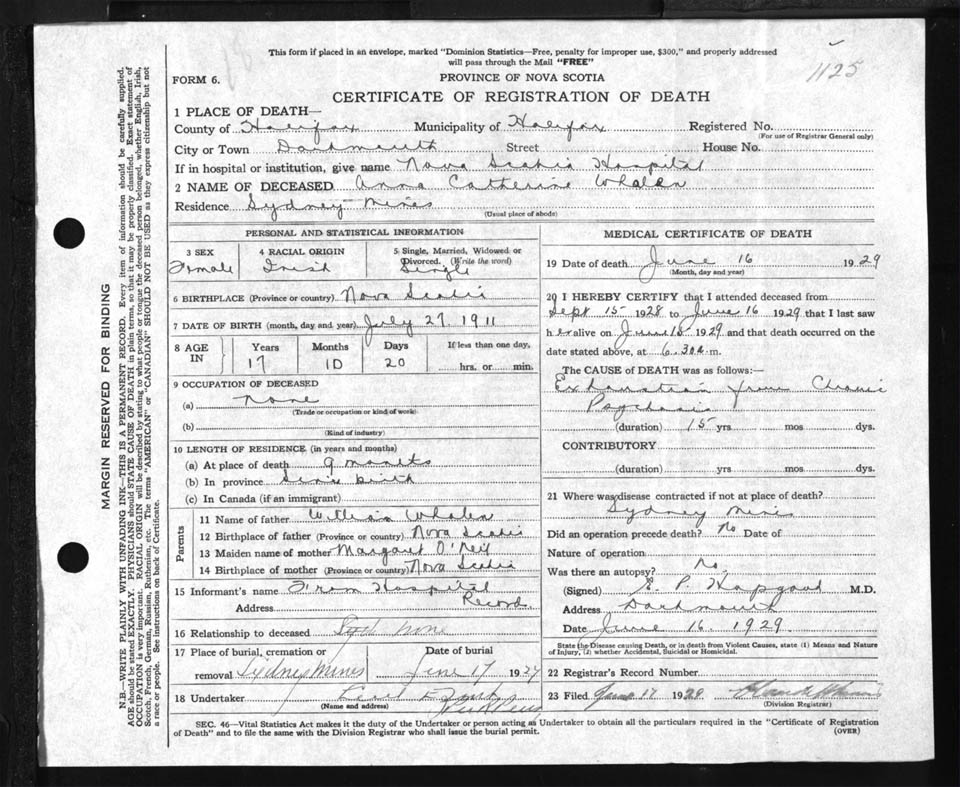 1125
This form if placed in an envelope, marked "Dominion Statistics—Free, penalty for improper use, $300," and properly addressed
will pass through the Mail "FREE"
FORM 6.
PROVINCE OF NOVA SCOTIA
CERTIFICATE OF REGISTRATION OF DEATH
1 PLACE OF DEATH—
County of Halifax Municipality of Halifax Registered No.
(For use of Registrar General only)
City or Town Dartmouth Street House No.
If in hospital or institution, give name Nova Scotia Hospital
2 NAME OF DECEASED Anna Catherine Whalen
Residence Sydney Mines
(Usual place of abode)
PERSONAL AND STATISTICAL INFORMATION
3 SEX 4 RACIAL ORIGIN 5 Single, Married, Widowed or
Divorced. (Write the word)
Female Irish Single
6 BIRTHPLACE (Province or country) Nova Scotia
7 DATE OF BIRTH (month, day and year) July 27. 1911
8 AGE IN Years Months Days If less than one day,
17 10 20 hrs. or min.
9 OCCUPATION OF DECEASED
(a) None
(Trade or occupation or kind of work)
(b)
(Kind of industry)
10 LENGTH OF RESIDENCE (in years and months)
(a) At place of death 9 months
(b) In province Since birth
(c) In Canada (if an immigrant)
Parents
11 Name of father William Whalen
12 Birthplace of father (Province or country) Nova Scotia
13 Maiden name of mother Margaret O'Neil
14 Birthplace of mother (Province or country) Nova Scotia
15 Informant's name From Hospital
Address Record
16 Relationship to deceased none
17 Place of burial, cremation or Date of burial
removal Sydney Mines June 17 1929
18 Undertaker
(Name and address)
MEDICAL CERTIFICATE OF DEATH
19 Date of death June 16 1929
(Month, day and year)
20 I HEREBY CERTIFY that I attended deceased from
Sept 15 1928 to June 16 1929 that I last saw
her alive on June 15 1929 and that death occurred on the
date stated above, at 6.30 a.m.
The CAUSE of DEATH was as follows:
Exhaustion from Chronic
Psychosis
(duration) 15 yrs mos dys.
CONTRIBUTORY
(duration) yrs mos dys.
21 Where was disease contracted if not at place of death?
Sydney Mines
Did an operation precede death? No Date of
Nature of operation
Was there an autopsy? No.
(Signed) E. P. Hapgood M.D.
Address Dartmouth
Date June 16. 1929
State the Disease causing Death, or in death from Violent Causes, state (1) Means and Nature
of Injury, (2) whether Accidental, Suicidal or Homicidal.
22 Registrar's Record Number
23 Filed June 17 1929
(Division Registrar)
SEC. 46—Vital Statistics Act makes it the duty of the Undertaker or person acting as Undertaker to obtain all the particulars required in the "Certificate of Registration
of Death" and to file the same with the Division Registrar who shall issue the burial permit.
(OVER)
MARGIN RESERVED FOR BINDING
N.B.—WRITE PLAINLY WITH UNFADING INK—THIS IS A PERMANENT RECORD. Every item of information should be carefully supplied.
AGE should be stated EXACTLY. PHYSICIANS should STATE CAUSE OF DEATH in plain terms, so that it may be properly classified. Exact statement of
OCCUPATION is very important. RACIAL ORIGIN will be described by stating to what people or tongue the deceased person belonged, whether English, Irish,
Scotch, French, German, Russian, Ruthenian, etc. The terms "AMERICAN" or "CANADIAN" SHOULD NOT BE USED as they express citizenship but not
a race or people. See instructions on back of Certificate.